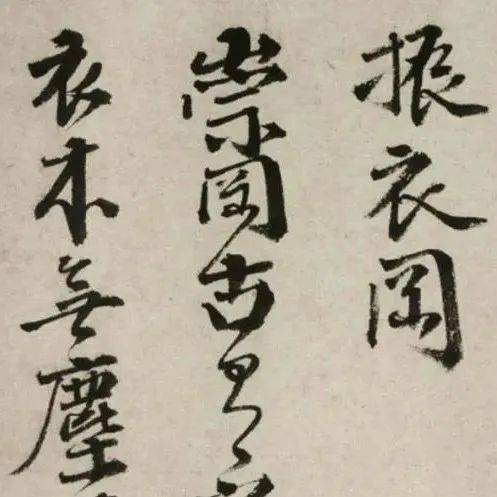 振衣岡
崇岡古
衣本無塵